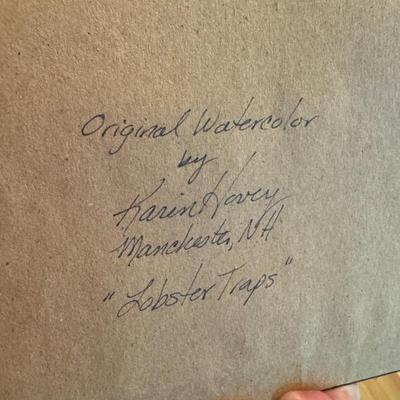 Original Watercolor
by
Karin Hovey
Manchester, NH
"Lobster Traps"